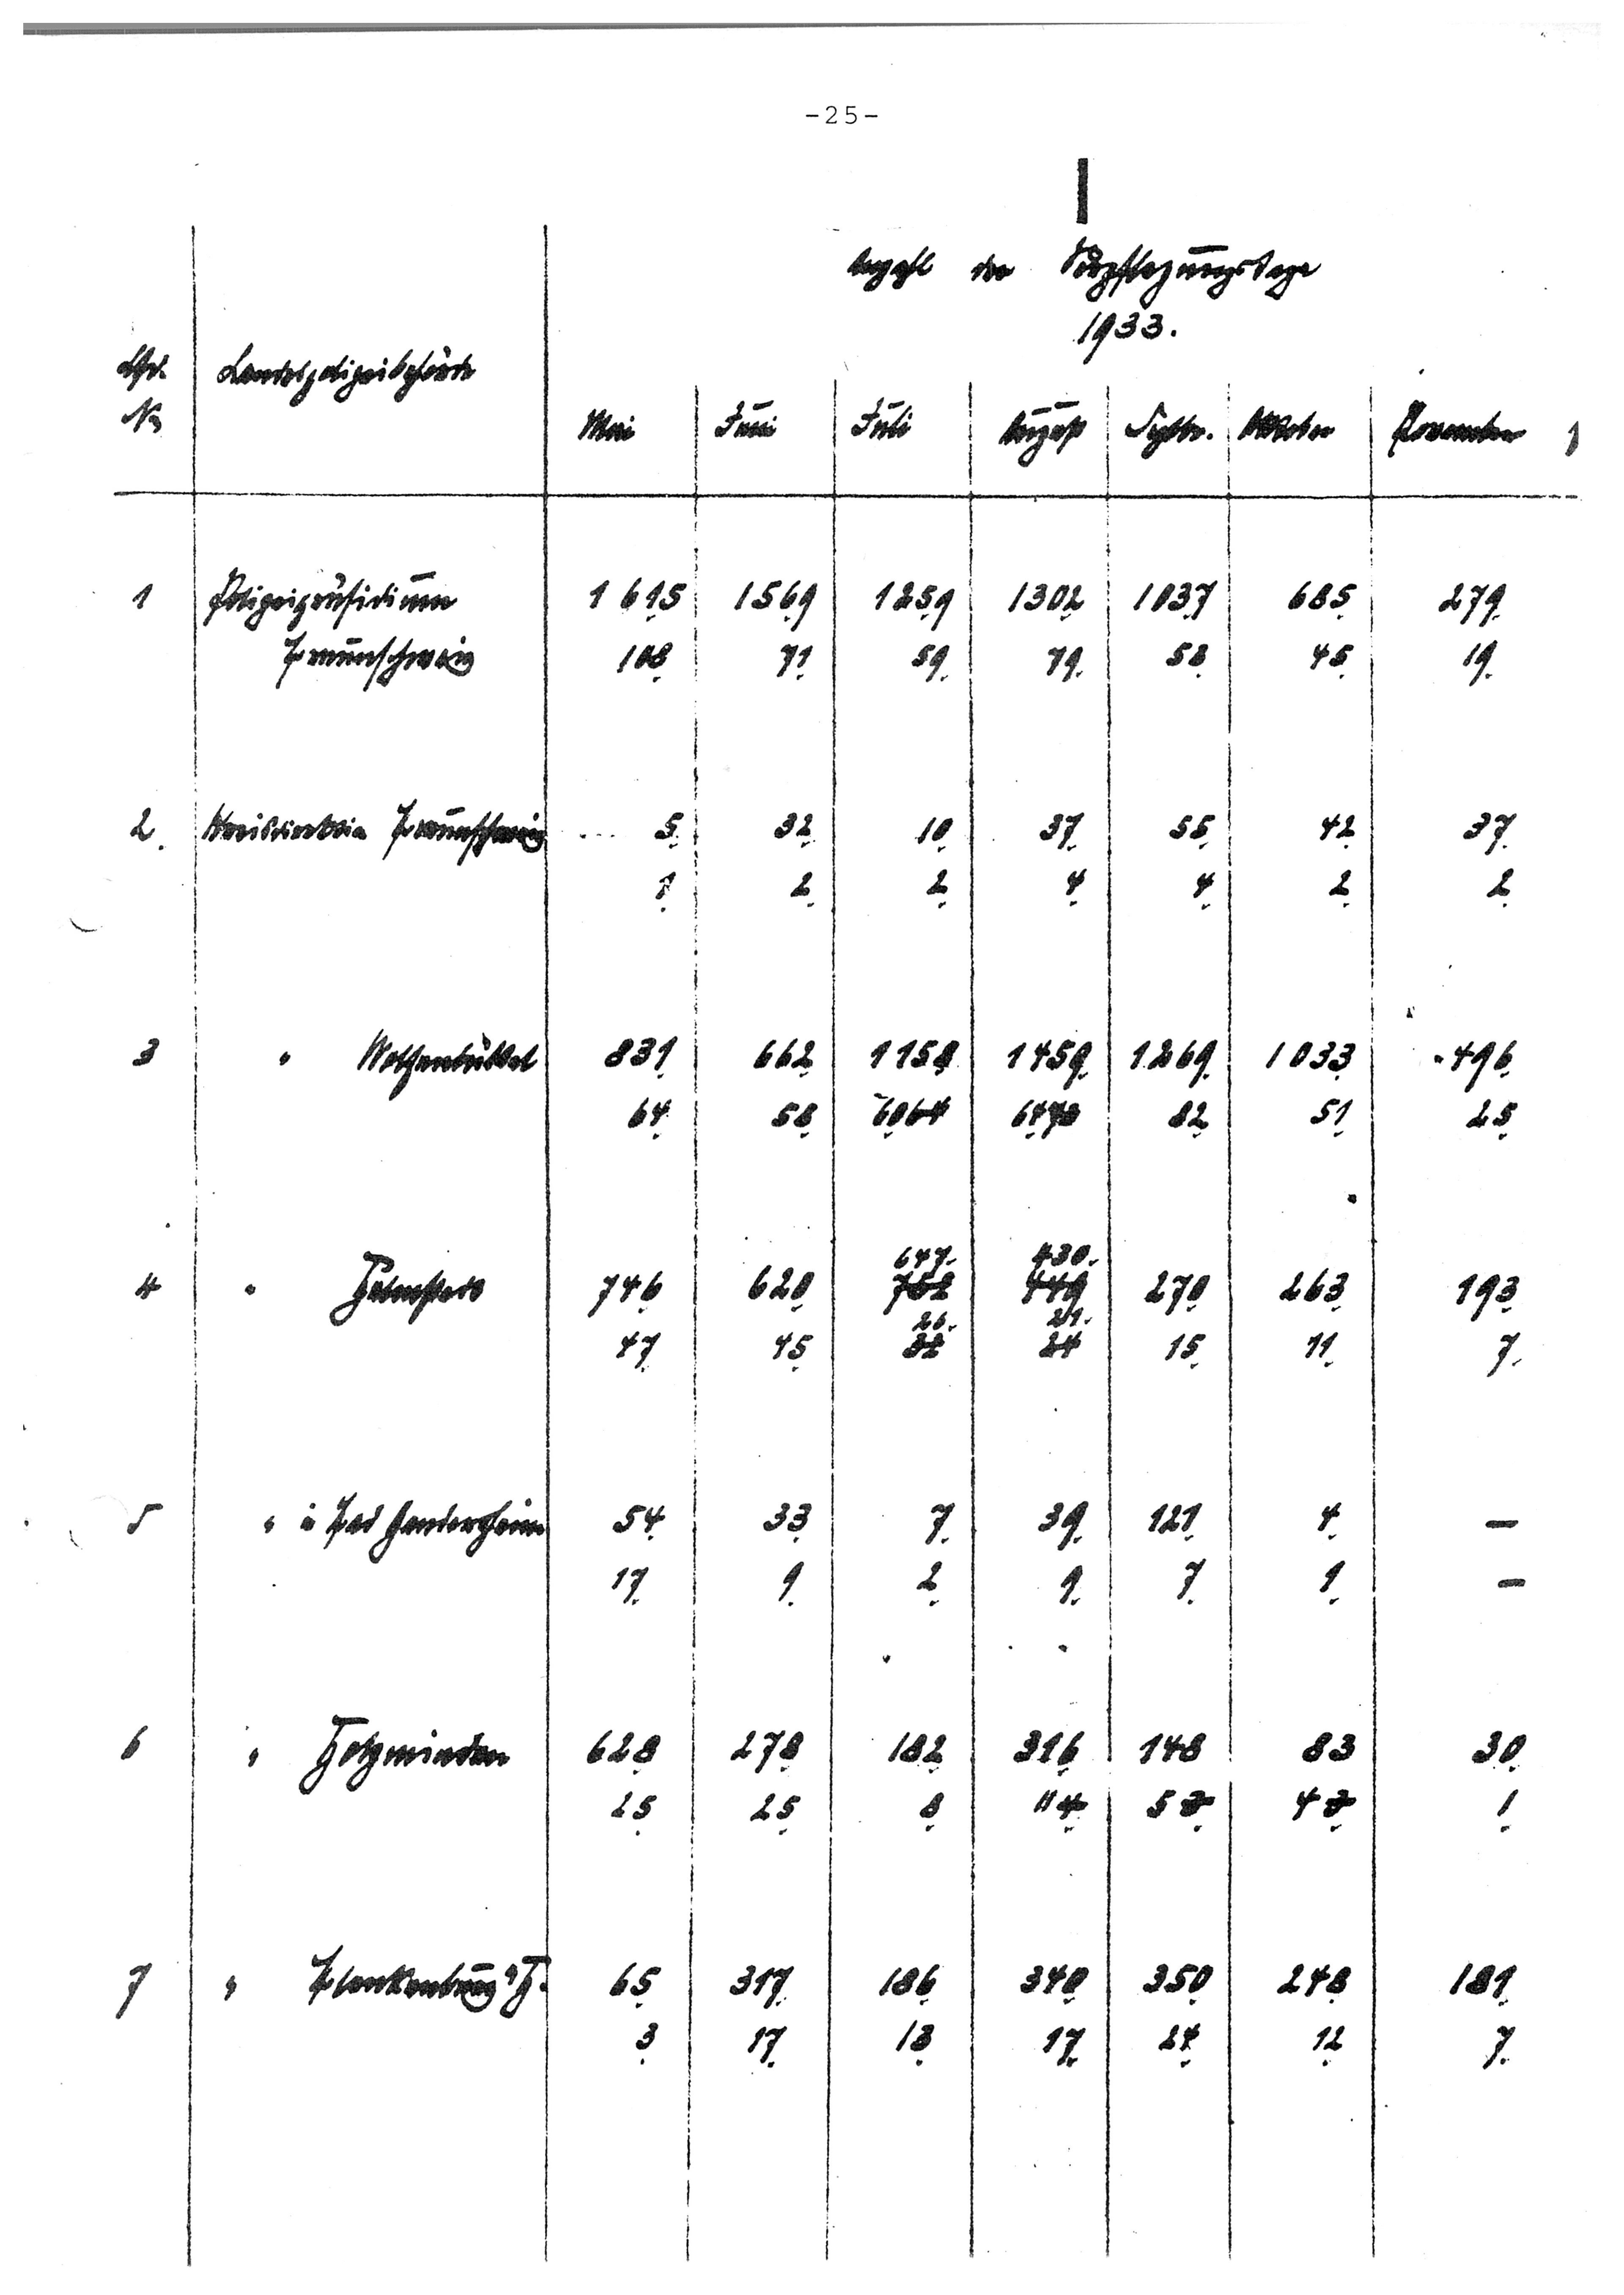 -25-
Anzahl der Verpflegungstage
1933.
Lfd. Landespolizeibehörde
Nr.
Mai Juni Juli August Septbr. Oktober November
1 Polizeipräsidium 1615 1569 1259 1302 1037 685 279
Braunschweig 108 71 59 79 58 45 19
2. Kreisdirektion Braunschweig 5 32 10 37 55 42 37
1 2 2 4 4 2 2
3 " Wolfenbüttel 831 662 1158 1459 1269 1033 496
64 58 60 64 82 51 25
647. 430.
4 " Helmstedt 746 620 762 449 270 263 193
26. 21.
47 45 32 24 15 11 7.
5 " Bad Gandersheim 54 33 7 39 121 4 —
17 9 2 9 7 1 —
6 " Holzminden 628 278 182 316 148 83 30
25 25 8 11 5 4 1
7 " Blankenburg a/H. 65 317 186 340 350 248 181
3 17 13 17 24 12 7